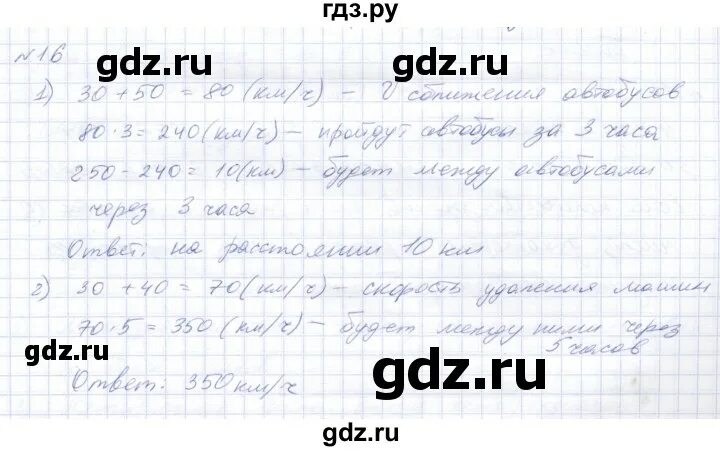 гдз.ру
№16
gdz.ru gdz.ru
1) 30 + 50 = 80 (км/ч) – V сближения автобусов
80 · 3 = 240 (км/ч) – пройдут автобусы за 3 часа
250 - 240 = 10 (км) – будет между автобусами
через 3 часа
gdz.ru
Ответ: на расстоянии 10 км
2) 30 + 40 = 70 (км/ч) – скорость удаления машин
70 · 5 = 350 (км/ч) – будет между ними через
5 часов
gdz.ru gdz.ru
Ответ: 350 км/ч
gdz.ru